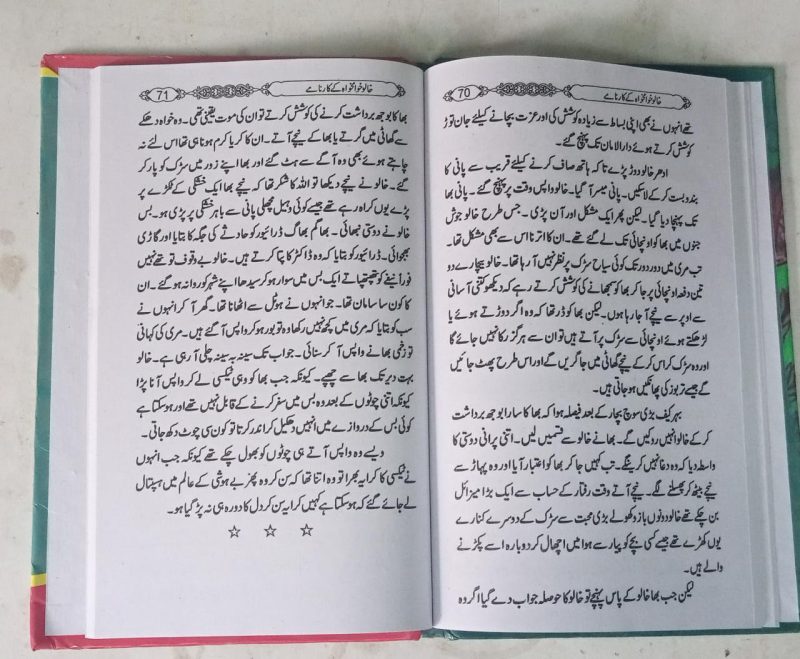 خالو خوانخواہ کے کارنامے
70
تھے انہوں نے بھی اپنی بساط سے زیادہ کوشش کی اور عزت بچانے کیلئے جان توڑ
کوشش کرتے ہوئے دارالامان تک پہنچ گئے۔
ادھر خالو دوڑ پڑے تاکہ ہاتھ صاف کرنے کیلئے قریب سے پانی کا
بندوبست کر کے لاسکیں۔ پانی میسر آ گیا۔ خالو واپس وقت پر پہنچ گئے۔ پانی بھا
تک پہنچا دیا گیا۔ لیکن پھر ایک مشکل اور آن پڑی۔ جس طرح خالو جوش
جنوں میں بھا کو اونچائی تک لے گئے تھے۔ ان کا اترنا اس سے بھی مشکل تھا۔
تب مری میں دور دور تک کوئی سیاح سڑک پر نظر نہیں آ رہا تھا۔ خالو بیچارے دو
تین دفعہ اونچائی پر جا کر بھا کو سمجھانے کی کوشش کرتے رہے کہ دیکھو کتنی آسانی
سے اوپر سے نیچے آ جا رہا ہوں۔ لیکن بھا کو ڈر تھا کہ وہ اگر دوڑتے ہوئے یا
لڑھکتے ہوئے اونچائی سے سڑک پر آتے ہیں تو ان سے ہرگز رکا نہیں جائے گا
اور وہ سڑک کراس کر کے نیچے گھاٹی میں جا گریں گے اور اس طرح پھٹ جائیں
گے جیسے تربوز کی پھانکیں ہو جاتی ہیں۔
بہرکیف بڑی سوچ بچار کے بعد فیصلہ ہوا کہ بھا کا سارا بوجھ برداشت
کر کے خالو انہیں روکیں گے۔ بھا نے خالو سے قسمیں لیں۔ اتنی پرانی دوستی کا
واسطہ دیا کہ وہ دغا نہیں کرینگے۔ تب کہیں جا کر بھا کو اعتبار آیا اور وہ پہاڑ سے
نیچے بیٹھ کر پھسلنے لگے۔ نیچے آتے وقت رفتار کے حساب سے ایک بڑا میزائل
بن چکے تھے خالو دونوں بازو کھولے بڑی محبت سے سڑک کے دوسرے کنارے
یوں کھڑے تھے جیسے کسی بچے کو پیار سے ہوا میں اچھال کر دوبارہ اسے پکڑنے
والے ہیں۔
لیکن جب بھا خالو کے پاس پہنچے تو خالو کا حوصلہ جواب دے گیا اگر وہ
خالو خوانخواہ کے کارنامے
71
بھا کا بوجھ برداشت کرنے کی کوشش کرتے تو ان کی موت یقینی تھی۔ وہ خواہ دھکے
سے گھاٹی میں گرتے یا بھا کے نیچے آتے۔ ان کا کریا کرم ہونا ہی تھا اس لئے نہ
چاہتے ہوئے بھی وہ آگے سے ہٹ گئے اور بھا اپنے زور میں سڑک کو پار کر
گئے۔ خالو نے نیچے دیکھا تو اللہ کا شکر تھا کہ نیچے بھا ایک خشکی کے ٹکڑے پر
پڑے یوں کراہ رہے تھے جیسے کوئی وہیل مچھلی پانی سے باہر خشکی پر پڑی ہو۔ بس
خالو نے دوستی نبھائی۔ بھاگم بھاگ ڈرائیور کو حادثے کی جگہ کا بتایا اور گاڑی
بھجوائی۔ ڈرائیور کو بتایا کہ وہ ڈاکٹر کا پتا کرتے ہیں۔ خالو بے وقوف تو تھے نہیں
فوراً نیفے کو تھپتھپاتے ایک بس میں سوار ہو کر سیدھا اپنے شہر کو روانہ ہو گئے۔ ان
کا کون سا سامان تھا۔ جو انہوں نے ہوٹل سے اٹھانا تھا۔ گھر آ کر انہوں نے
سب کو بتایا کہ مری میں کچھ نہیں رکھا وہ تو بور ہو کر واپس آ گئے ہیں۔ مری کی کہانی
تو زخمی بھا نے واپس آ کر سنائی۔ جو اب تک سینہ بہ سینہ چلی آ رہی ہے۔ خالو
بہت دیر تک بھا سے چھپے۔ کیونکہ جب بھا کو وہی ٹیکسی لے کر واپس آنا پڑا
کیونکہ اتنی چوٹوں کے بعد وہ بس میں سفر کرنے کے قابل نہیں تھے اور ہو سکتا ہے
کوئی بس کے دروازے میں انہیں دھکیل کر اندر کرتا تو کون سی چوٹ دکھ جاتی۔
ویسے وہ واپس آتے ہی چوٹوں کو بھول چکے تھے کیونکہ جب انہوں
نے ٹیکسی کا کرایہ بھرا تو وہ اتنا تھا کہ سن کر وہ پھر بے ہوشی کے عالم میں ہسپتال
لے جائے گئے کہ ہو سکتا ہے کہیں کرایہ سن کر دل کا دورہ ہی نہ پڑ گیا ہو۔
☆ ☆ ☆